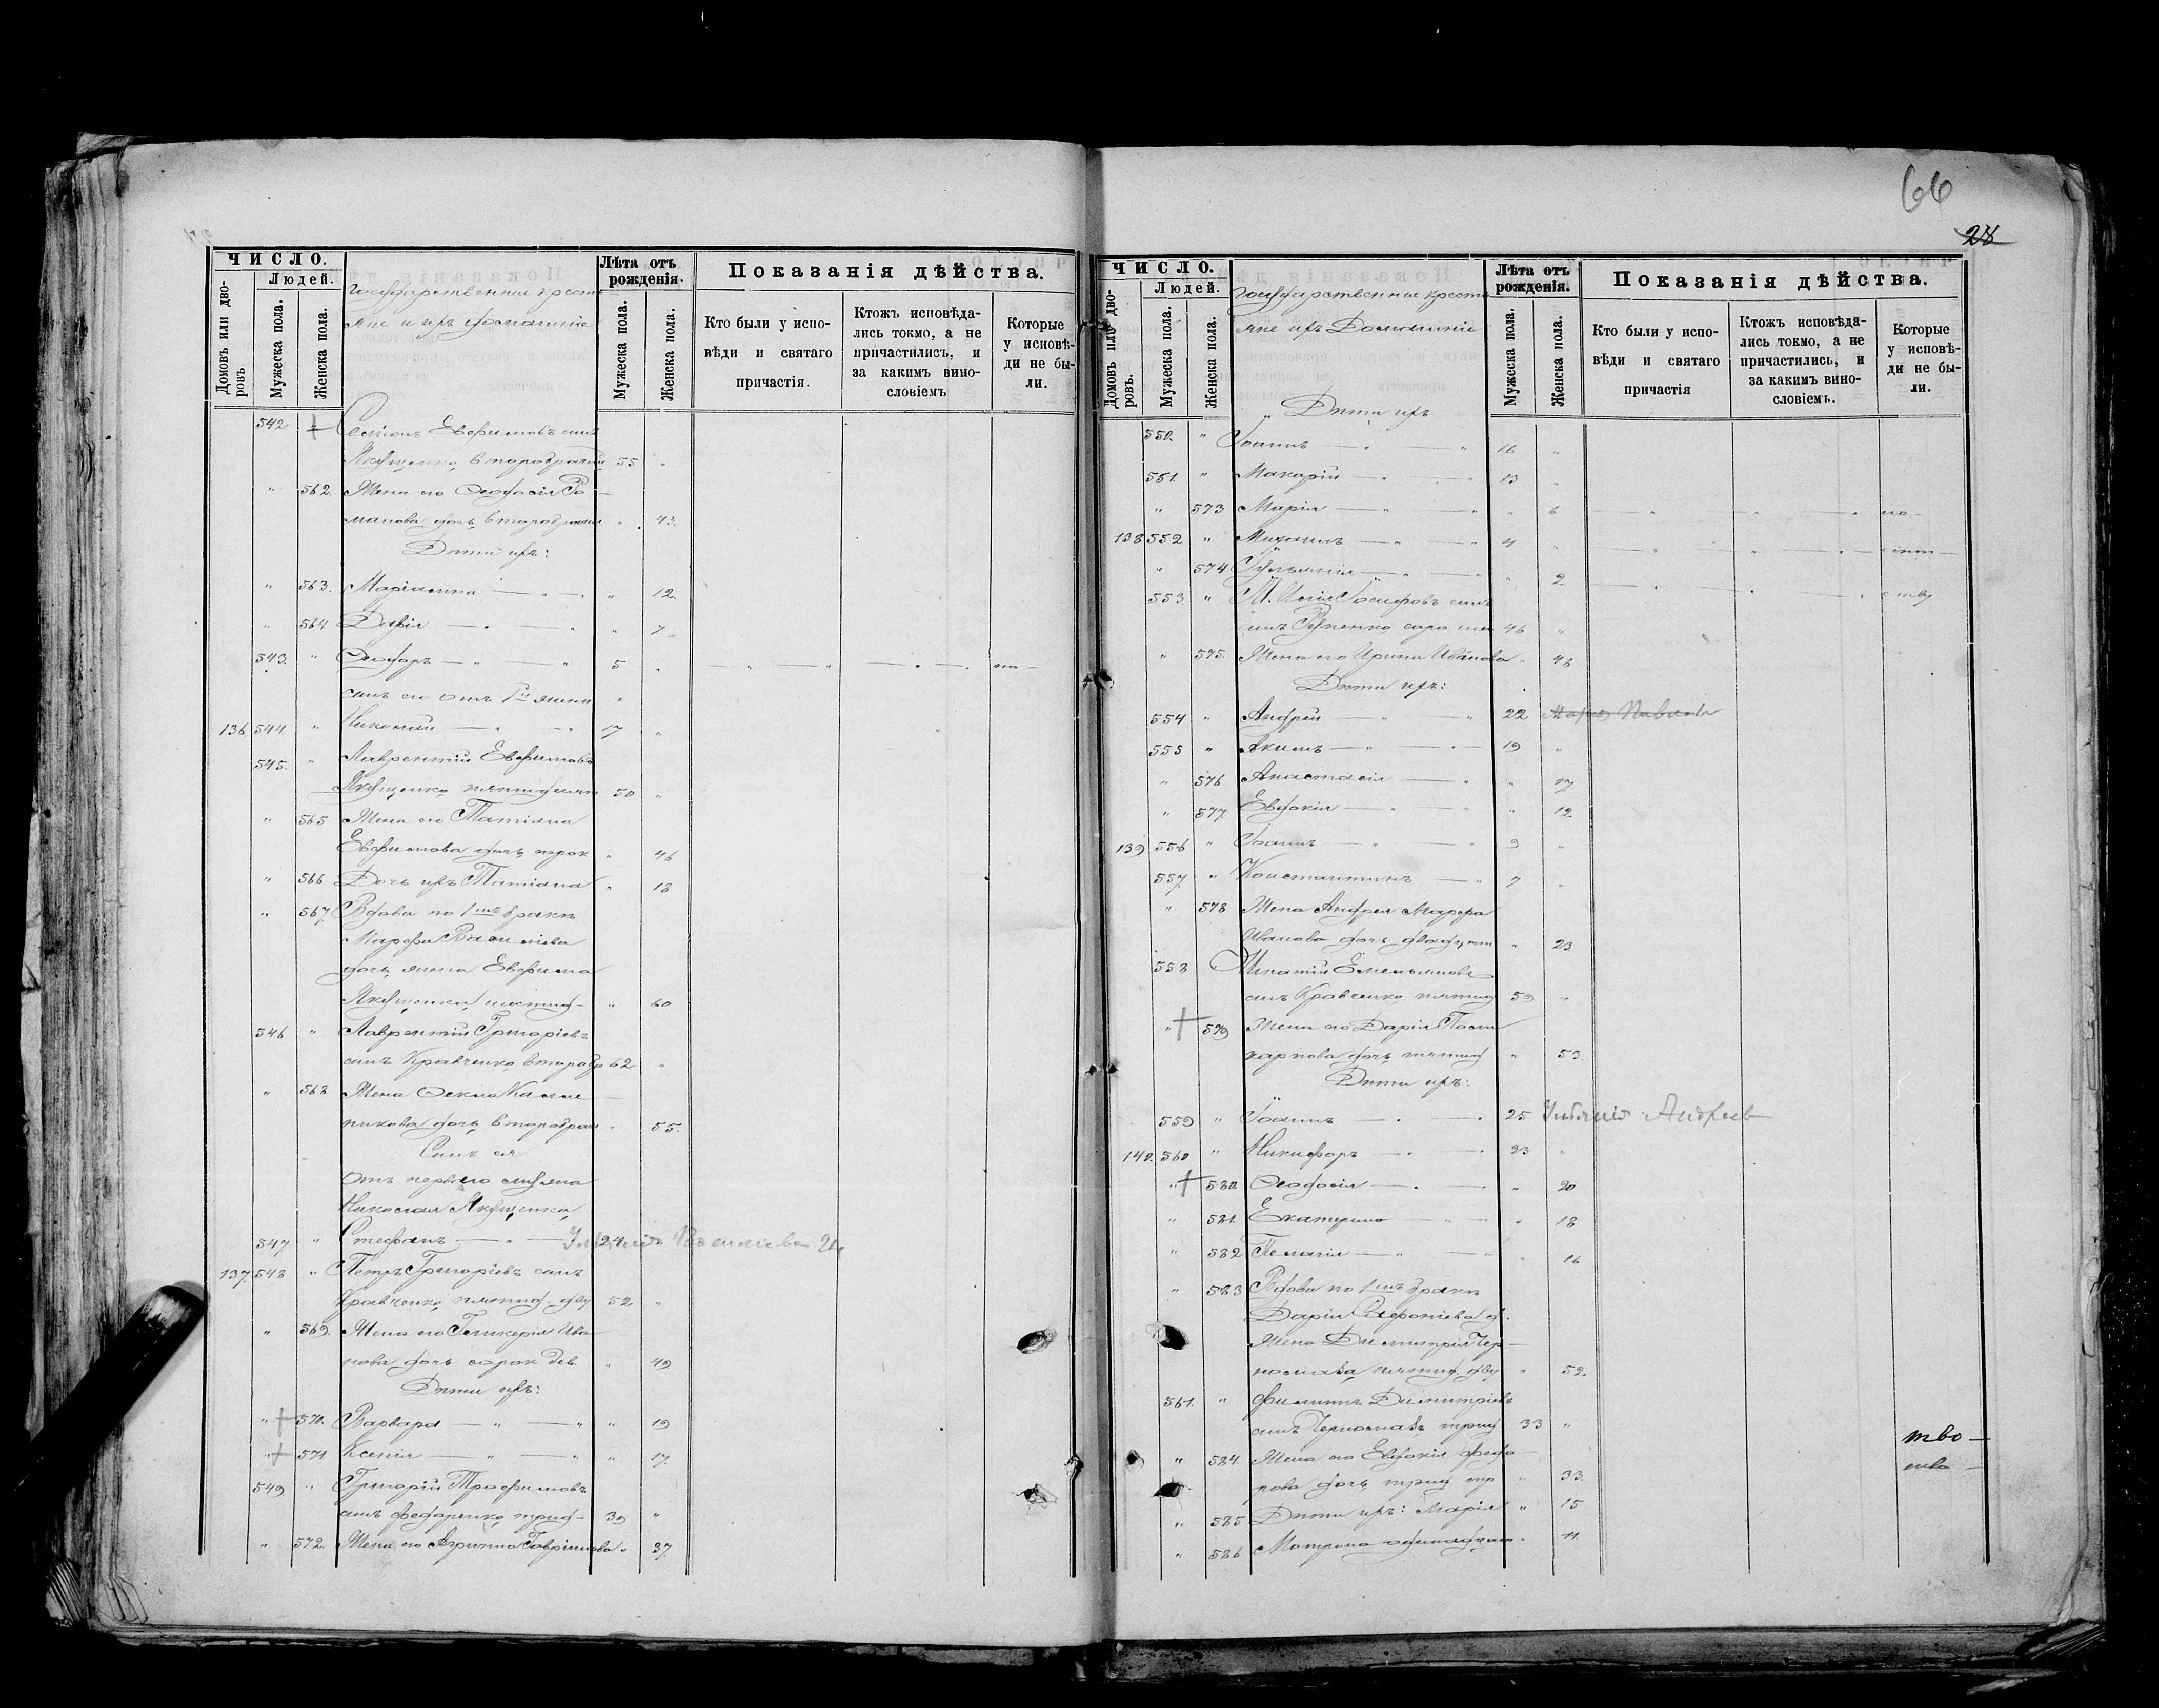 66
28
ЧИСЛО.
Людей.
Домовъ или дво-
ровъ.
Мужеска пола.
Женска пола.
Государственные кресть-
яне и ихъ домашніе
Лѣта отъ
рожденія.
Мужеска пола.
Женска пола.
Показанія дѣйства.
Кто были у испо-
вѣди и святаго
причастія.
Ктожъ исповѣда-
лись токмо, а не
причастились, и
за какимъ вино-
словіемъ
Которые
у исповѣ-
ди не бы-
ли.
542 Евфимовъ сынъ
Якущенко второбрачный 55 "
" 562. Жена его Феодосія Ро-
манова дочь второбрачная " 43.
Дѣти ихъ:
" 563. Маріамна — " — " 12.
" 564 — " — " 7
543. " Феодоръ — " — " 5 " — " — " — " — по —
сынъ его отъ 1й жены "
136 544 " Николай — " — " 17 "
545. " Лаврентій Евфимовъ
Якущенко пятидесяти 50 "
" 565 Жена его Татіана
Евфимова дочь сорок " 46
" 566 Дочь ихъ Татіана " 18
" 567 Вдова по 1мъ бракѣ
Марфа Василіева
дочь жена Евфима
Якущенка шестид- " 60
546 " Лаврентій Григоріевъ
сынъ Кравченко второбр 62 "
" 568 Жена Фекла Калли-
никова дочь второбрач " 55.
Сынъ ея
отъ перваго мужа
Николая Якущенка
547 " Стефанъ — " — 24 Василіева 21
137. 548 " Петръ Григоріевъ сынъ
Кравченко пятид. дву 52 "
" 569. Жена его Гликерія Ива-
нова дочь сорок дев " 49
Дѣти ихъ:
" + 570. Варвара — " — " " 19
" + 571 Ксенія — " — " " 17.
549 " Григорій Трофимовъ
сынъ Федоренко трид- 39 "
" 572. Жена его Агрипина Гавріилова " 37.
ЧИСЛО.
Людей.
Домовъ или дво-
ровъ.
Мужеска пола.
Женска пола.
Государственные кресть-
яне ихъ Домашніе
Лѣта отъ
рожденія.
Мужеска пола.
Женска пола.
Показанія дѣйства.
Кто были у испо-
вѣди и святаго
причастія
Ктожъ исповѣда-
лись токмо, а не
причастились, и
за какимъ вино-
словіемъ.
Которые
у исповѣ-
ди не бы-
ли.
" Дѣти ихъ
550. " Іоаннъ — " — " 16 "
551 " Макарій — " — " 13 "
" 573 Марія — " — " " 6 — " — " — "
138 552 " Михаилъ — " — " 4 " — " — " — "
" 574 Іуліанія — " — " " 2 — " — " — "
553. " Іосифовъ сынъ
46 "
" 575. Жена его Ирина Иванова " 48
Дѣти ихъ:
554 " Андрей — " — " 22
555 " Акимъ — " — " 19 "
" 576 Анастасія — " " 17
" 577 Евдокія — " — " " 12.
139 556 " Іоаннъ — " — " 9 "
557. " Константинъ — " 7 "
" 578 Жена Андрея Марфа
Иванова дочь двадцат " 23
558 Игнатій Емельяновъ
сынъ Кравченко пятид 59 "
" + 579 Жена его Дарія Поли-
карпова дочь пятид " 53.
Дѣти ихъ:
559 " Іоаннъ — " — " 25 Андреев
140. 560 " Никифоръ — " — " 23 "
" + 580. Феодосія — " — " " 20
" 581. Екатерина — " — " " 18
" 582 Пелагія — " — " " 16
" 583 Вдова по 1мъ бракѣ
Дарія Сафоніева д.
Жена Димитрія Чер-
пятид. дву " 52.
561. " Филиппъ Димитріевъ
сынъ трид 33 "
" 584. Жена его Евдокія Федо-
рова дочь трид тр " 33.
" 585 Дѣти ихъ: Марія " 15
" 586 Матрона одинадцат " 11.